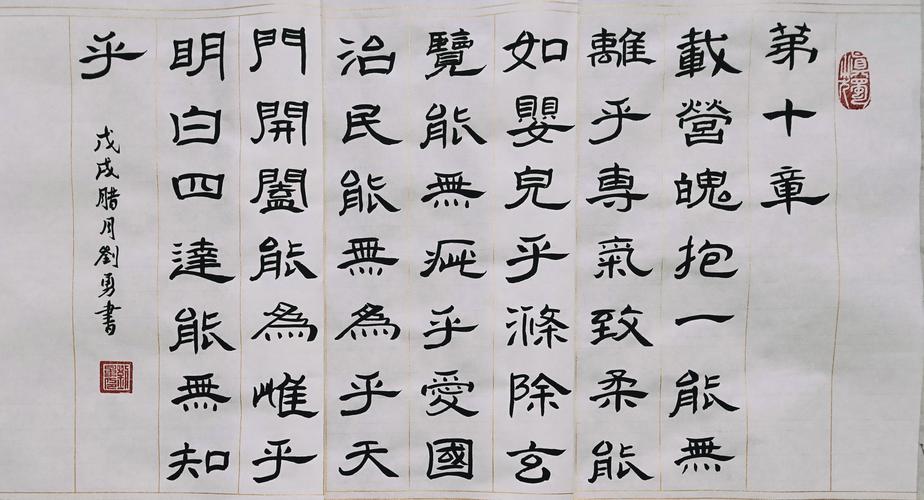 第十章
載營魄抱一能無
離乎專氣致柔能
如嬰兒乎滌除玄
覽能無疵乎愛國
治民能無為乎天
門開闔能為雌乎
明白四達能無知
乎
戊戌腊月劉勇書